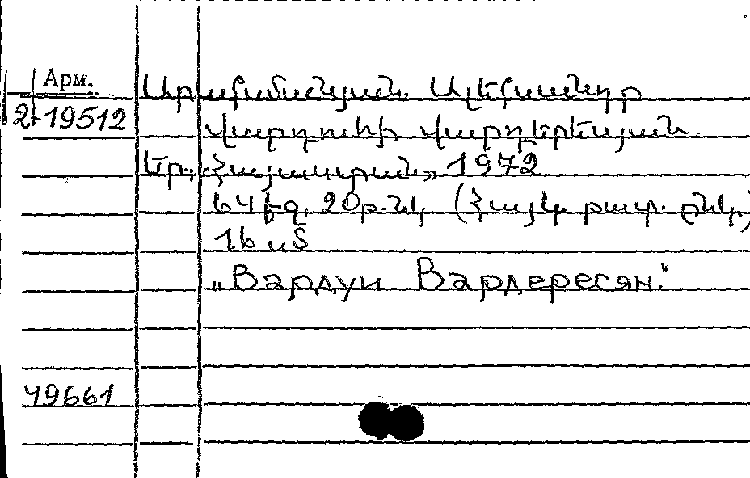 Арм.
2-19512
Արամանյան Ալեքսանդր
Վարդուհի Վարդերեսյան
Եր., «Հայաստան», 1972
64 էջ, 20թ. նկ. (Հայկ. թատ. ընկ.)
16 սմ
„Вардуи Вардересян.“
49661